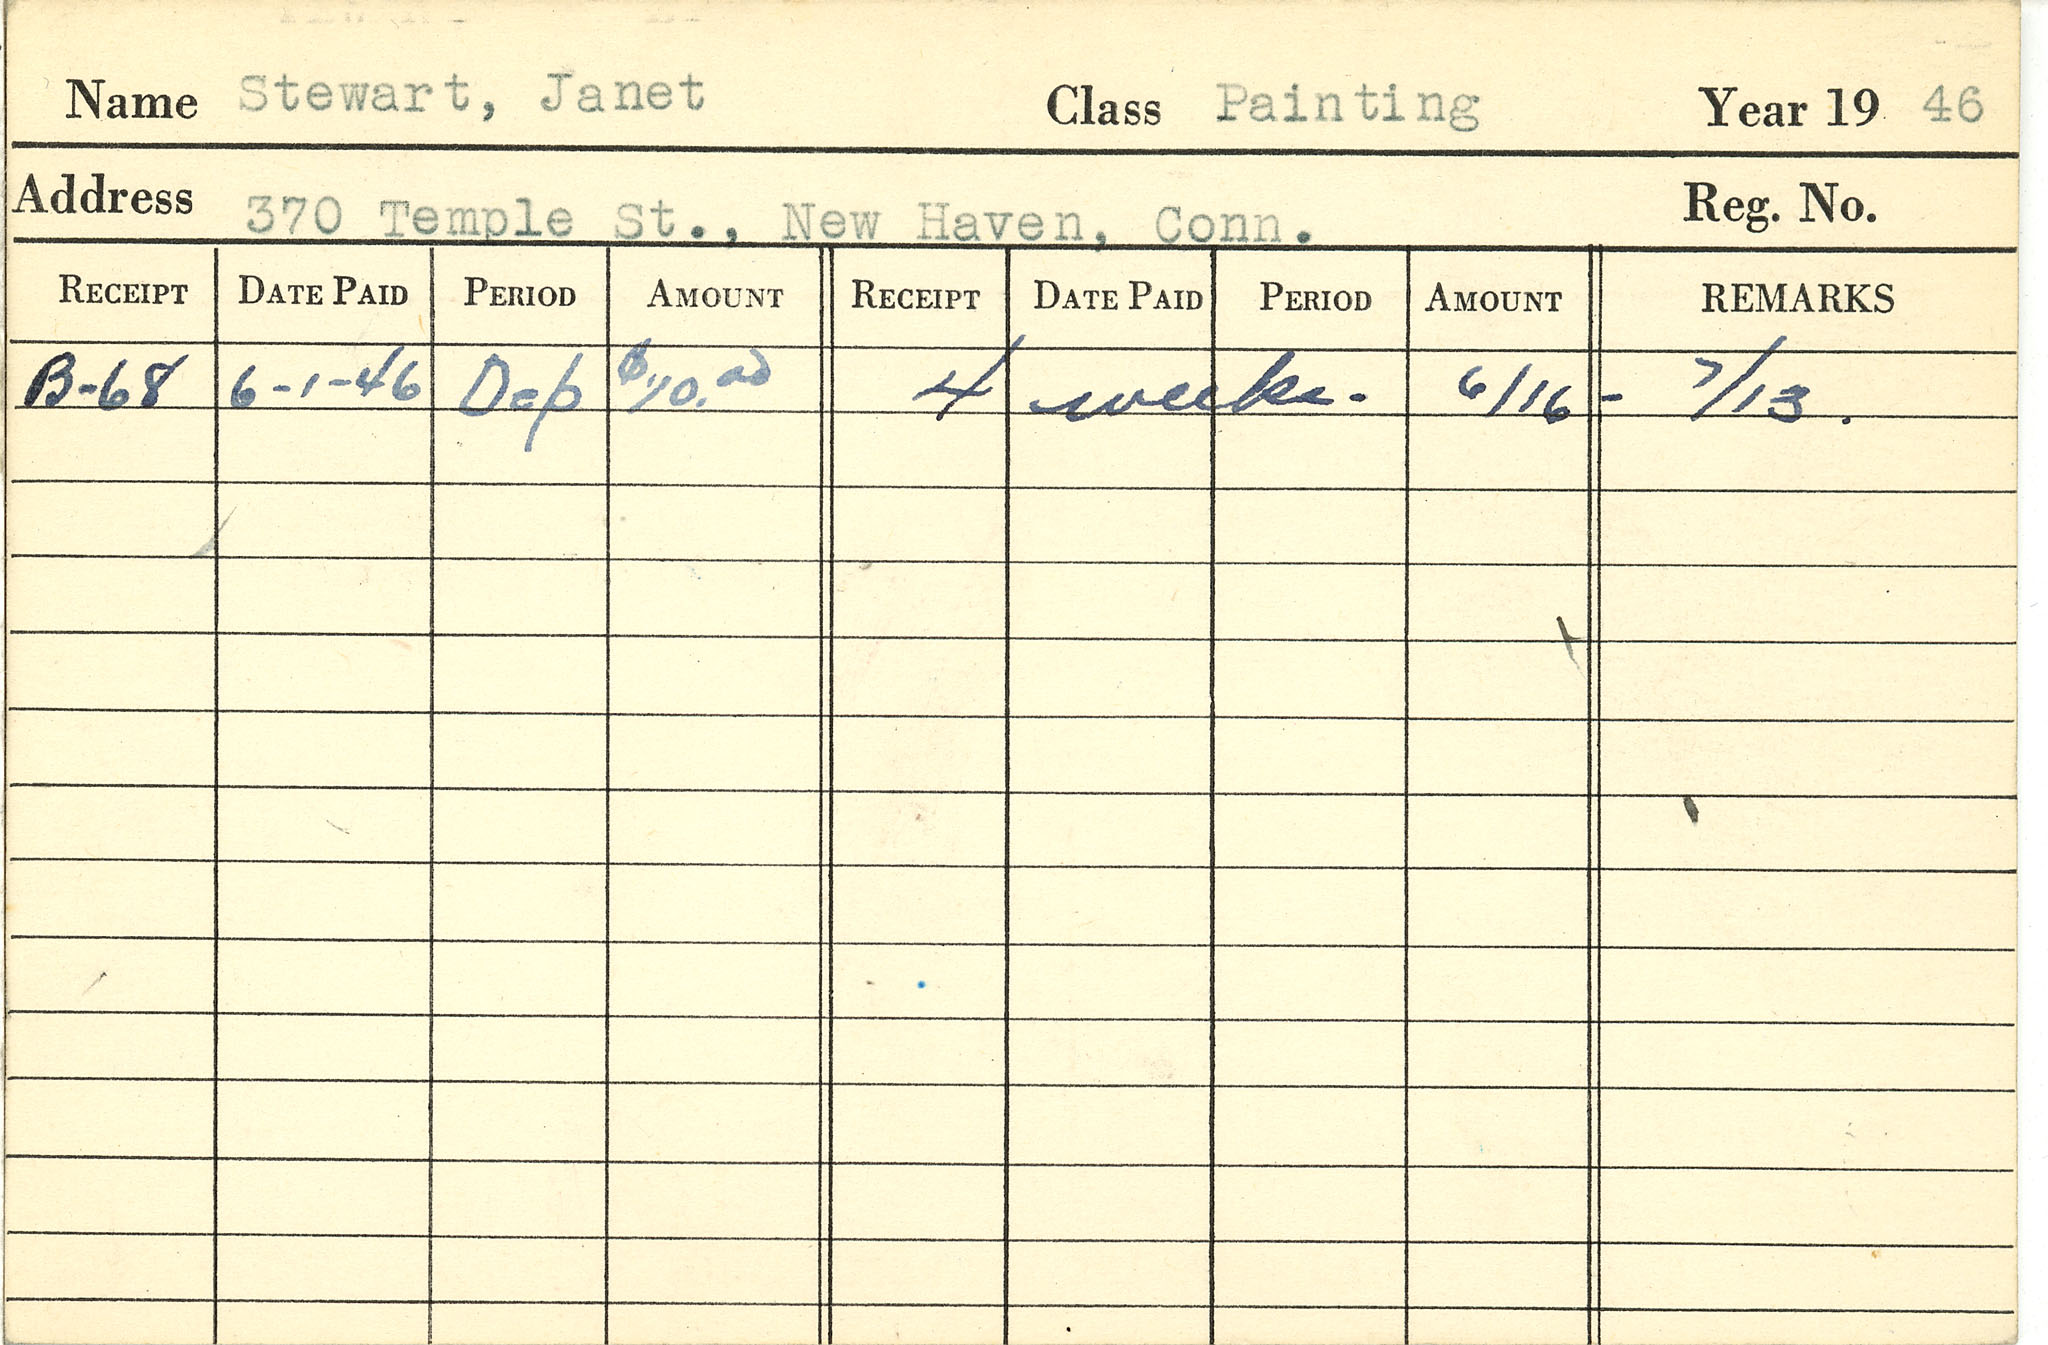 Name Stewart, Janet Class Painting Year 19 46
Address 370 Temple St., New Haven, Conn. Reg. No.
RECEIPT DATE PAID PERIOD AMOUNT RECEIPT DATE PAID PERIOD AMOUNT REMARKS
B-68 6-1-46 Dep $10.00 4 weeks. 6/16 - 7/13.